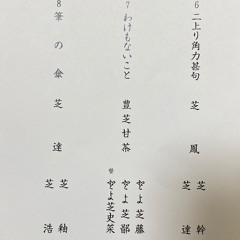 6 二上り角力甚句 芝 鳳 芝 幹
芝 達
7 わけもないこと 豊芝甘茶 やよ芝藤
やよ芝部
替 やよ芝史菜
8 筆の傘 芝 達 芝 釉
芝 浩